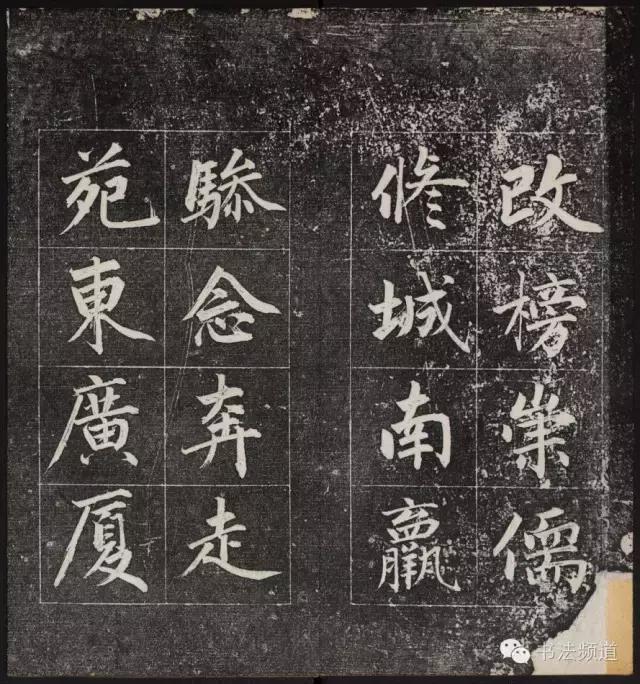 改榜崇儒
修城南羸
驂念奔走
苑東廣厦
书法频道